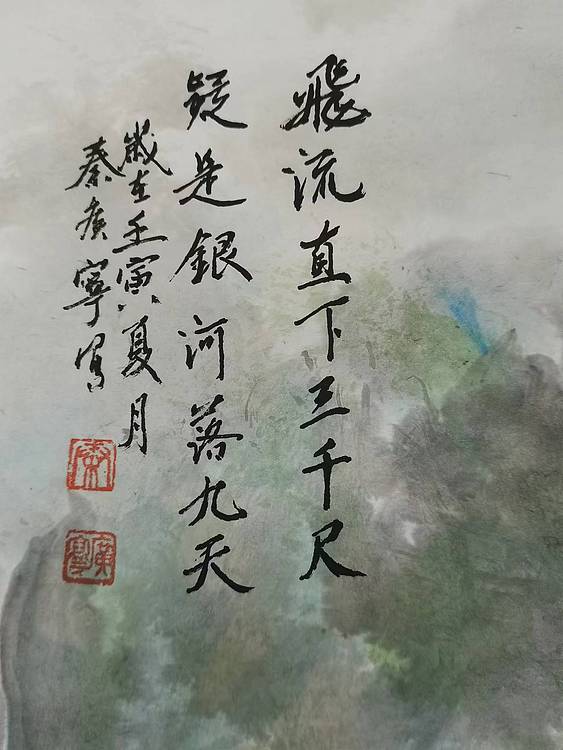 飛流直下三千尺
疑是銀河落九天
歲在壬寅夏月
秦廣寧写
秦
廣寧